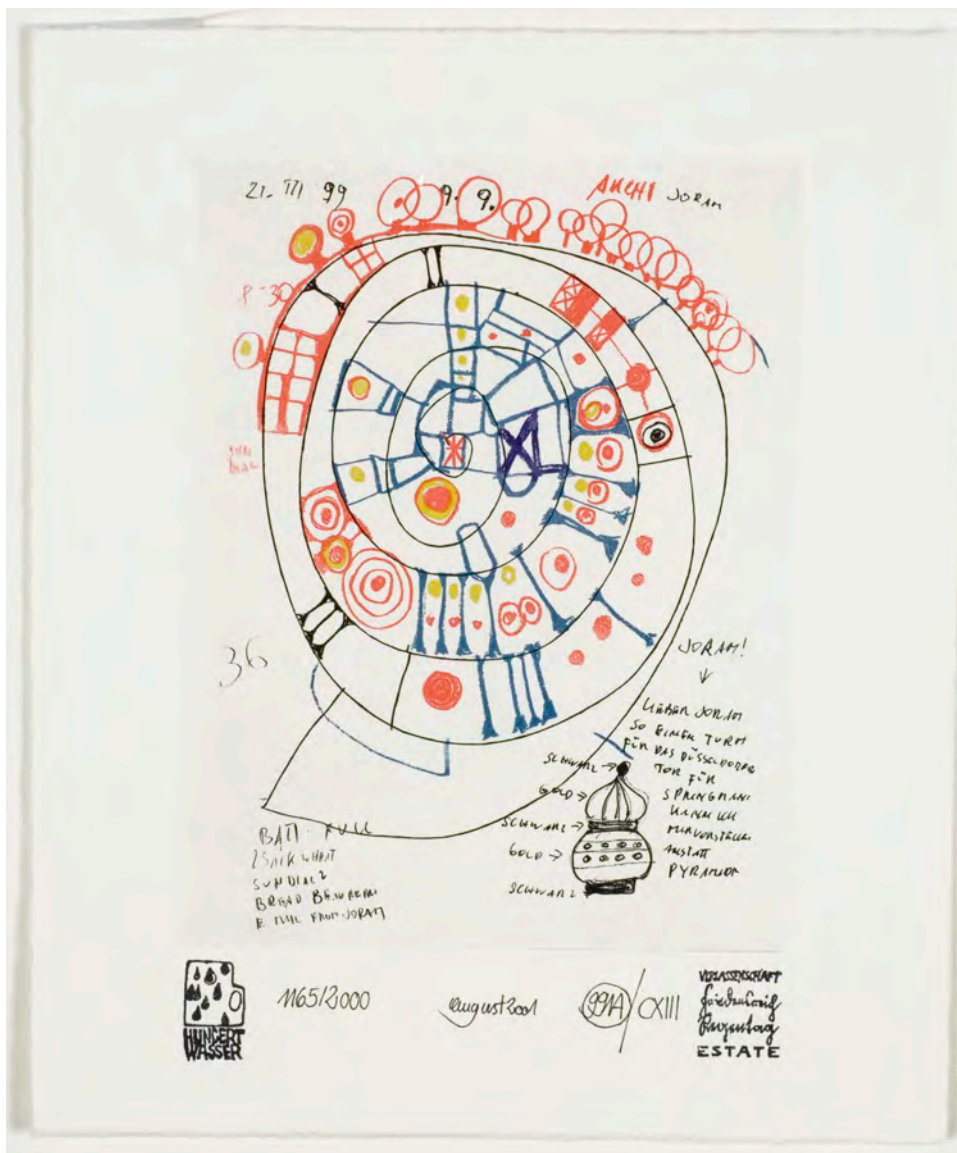 21. III 99 9. 9. ARCHI JORAM
8-30
36
JORAM!
LIEBER JORAM
SO EINEN TURM
FÜR DAS DÜSSELDORFER
TOR FÜR
SPRINGMANN
KANN ICH
MIR VORSTELLEN
ANSTATT
PYRAMIDE
SCHWARZ →
GOLD →
SCHWARZ →
GOLD →
SCHWARZ
SUNDIAL
FROM JORAM
HUNDERT
WASSER
1165/2000
august 2001
991A/CXIII
VERLASSENSCHAFT
Friedensreich
Regentag
ESTATE